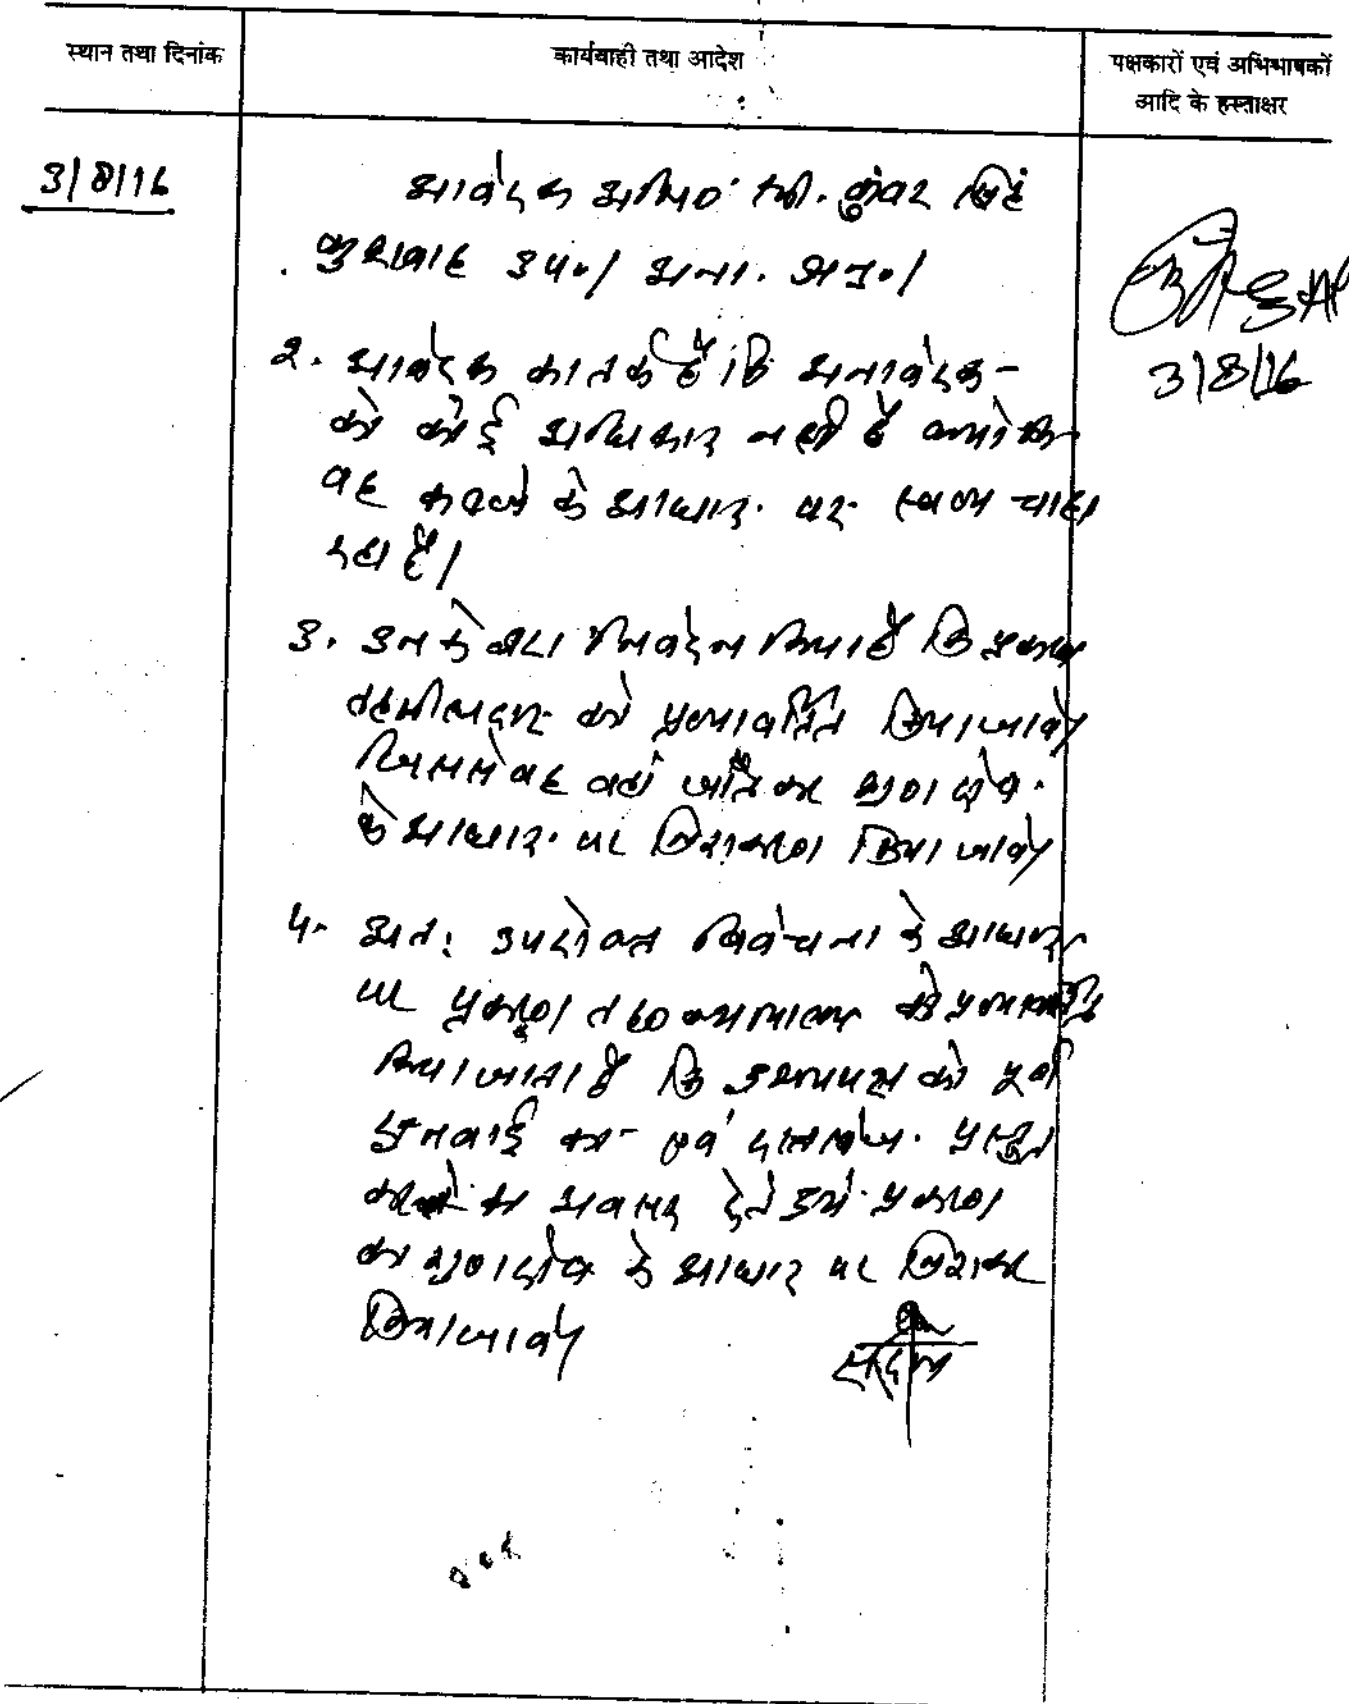 स्थान तथा दिनांक
कार्यवाही तथा आदेश
पक्षकारों एवं अभिभाषकों
आदि के हस्ताक्षर
3/8/16
आवेदक अभिभा० श्री. कुंवर सिंह
कुशवाह उप०/ अना. अनु०/
2. आवेदक का तर्क है कि अनावेदक
को कोई अधिकार नहीं है क्योंकि
वह कब्जे के आधार पर स्वत्व चाहा
रहा है।
3. उनके द्वारा निवेदन किया है कि प्रकरण
तहसीलदार को प्रत्यावर्तित किया जावे
जिससे वह वहाँ गुण दोष
के आधार पर निराकरण किया जावे
4. अतः उपरोक्त विवेचना के आधार
पर प्रकरण त०न्यायालय को प्रत्यावर्तित
किया जाता है कि उभयपक्ष को पूर्ण
सुनवाई का एवं दस्तावेज प्रस्तुत
करने का अवसर देते हुये प्रकरण
का गुणदोष के आधार पर
किया जावे
सदस्य
3/8/16